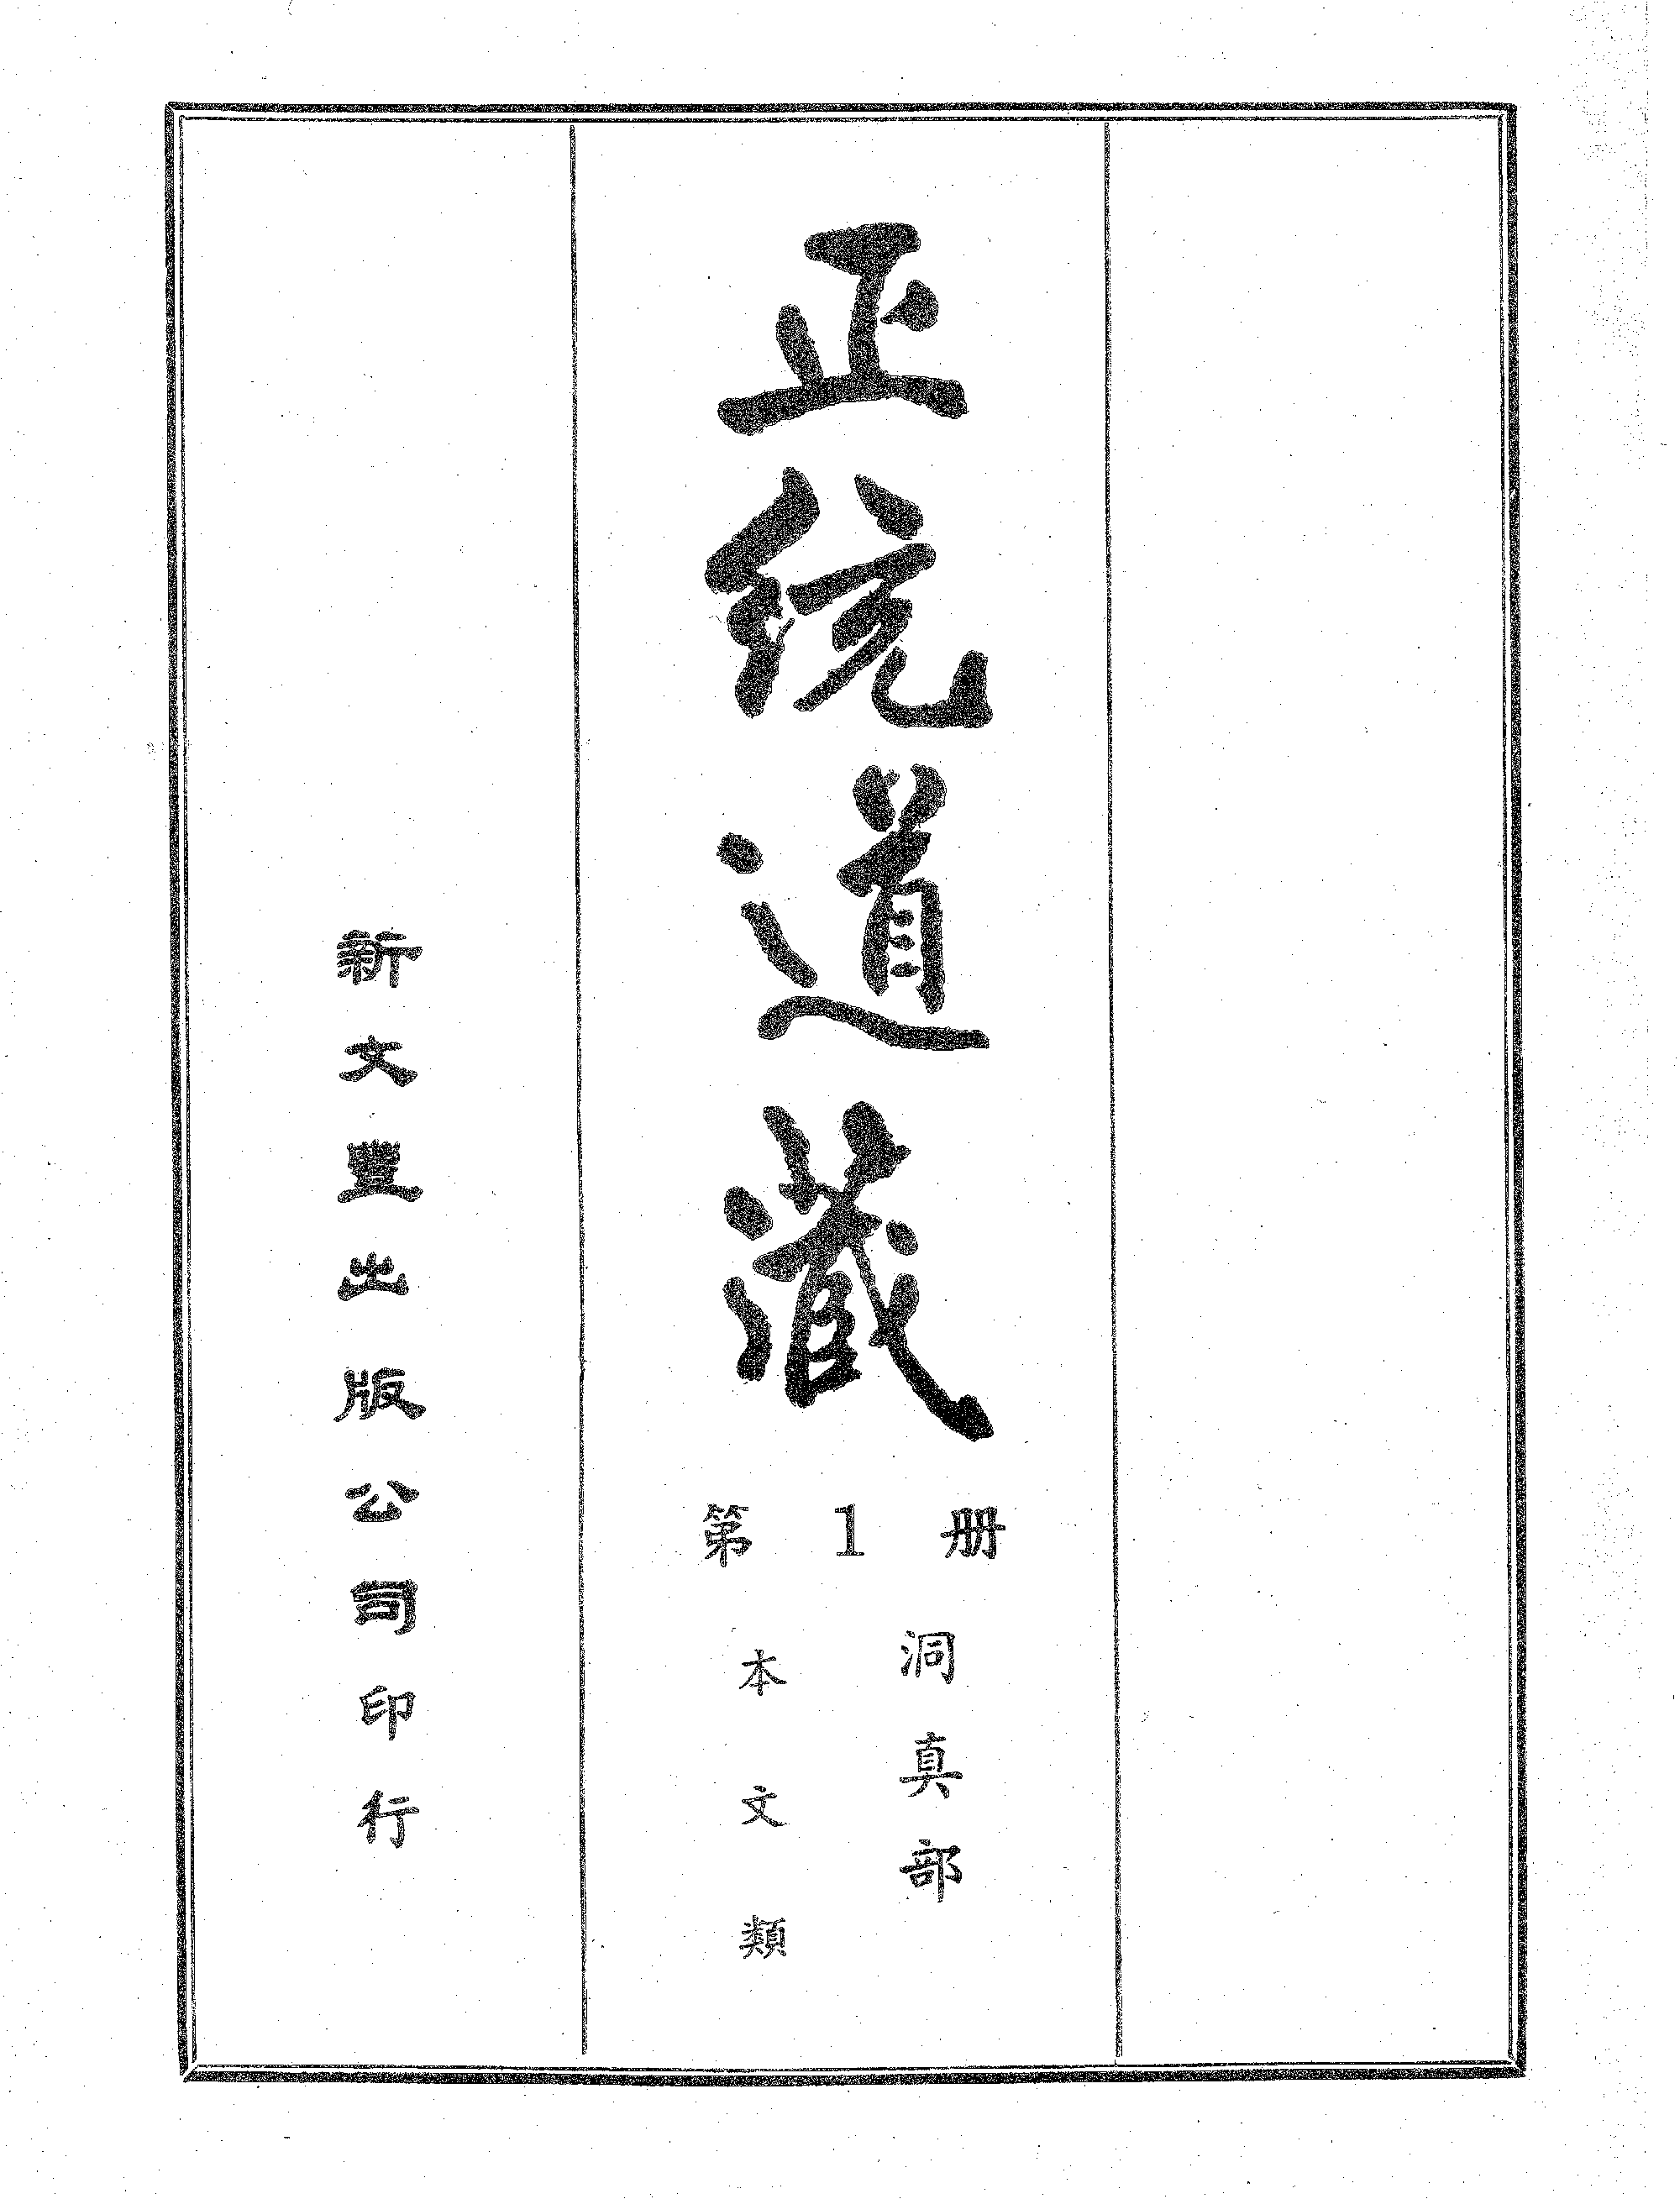 正統道藏
第1册
洞真部
本文類
新文豐出版公司印行